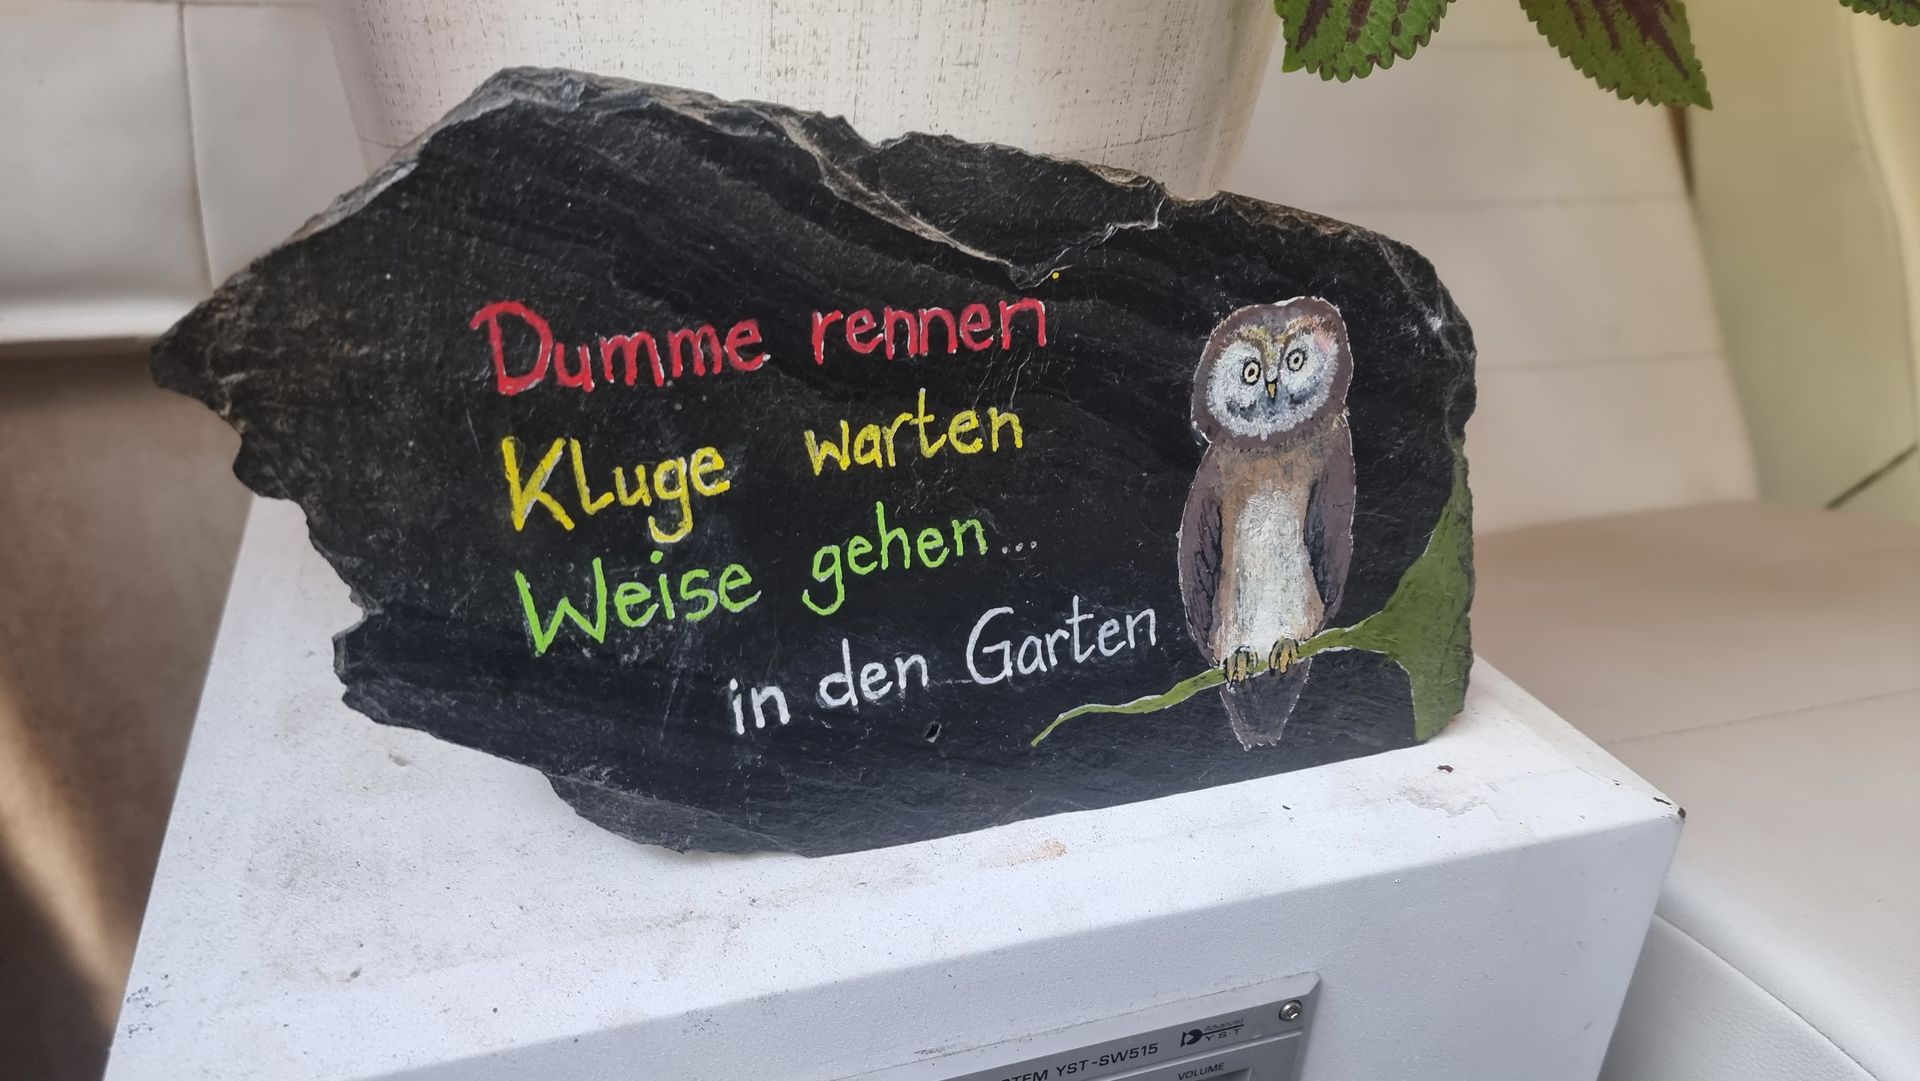 Dumme rennen
Kluge warten
Weise gehen...
in den Garten
Advanced
YST
YST-SW515
VOLUME